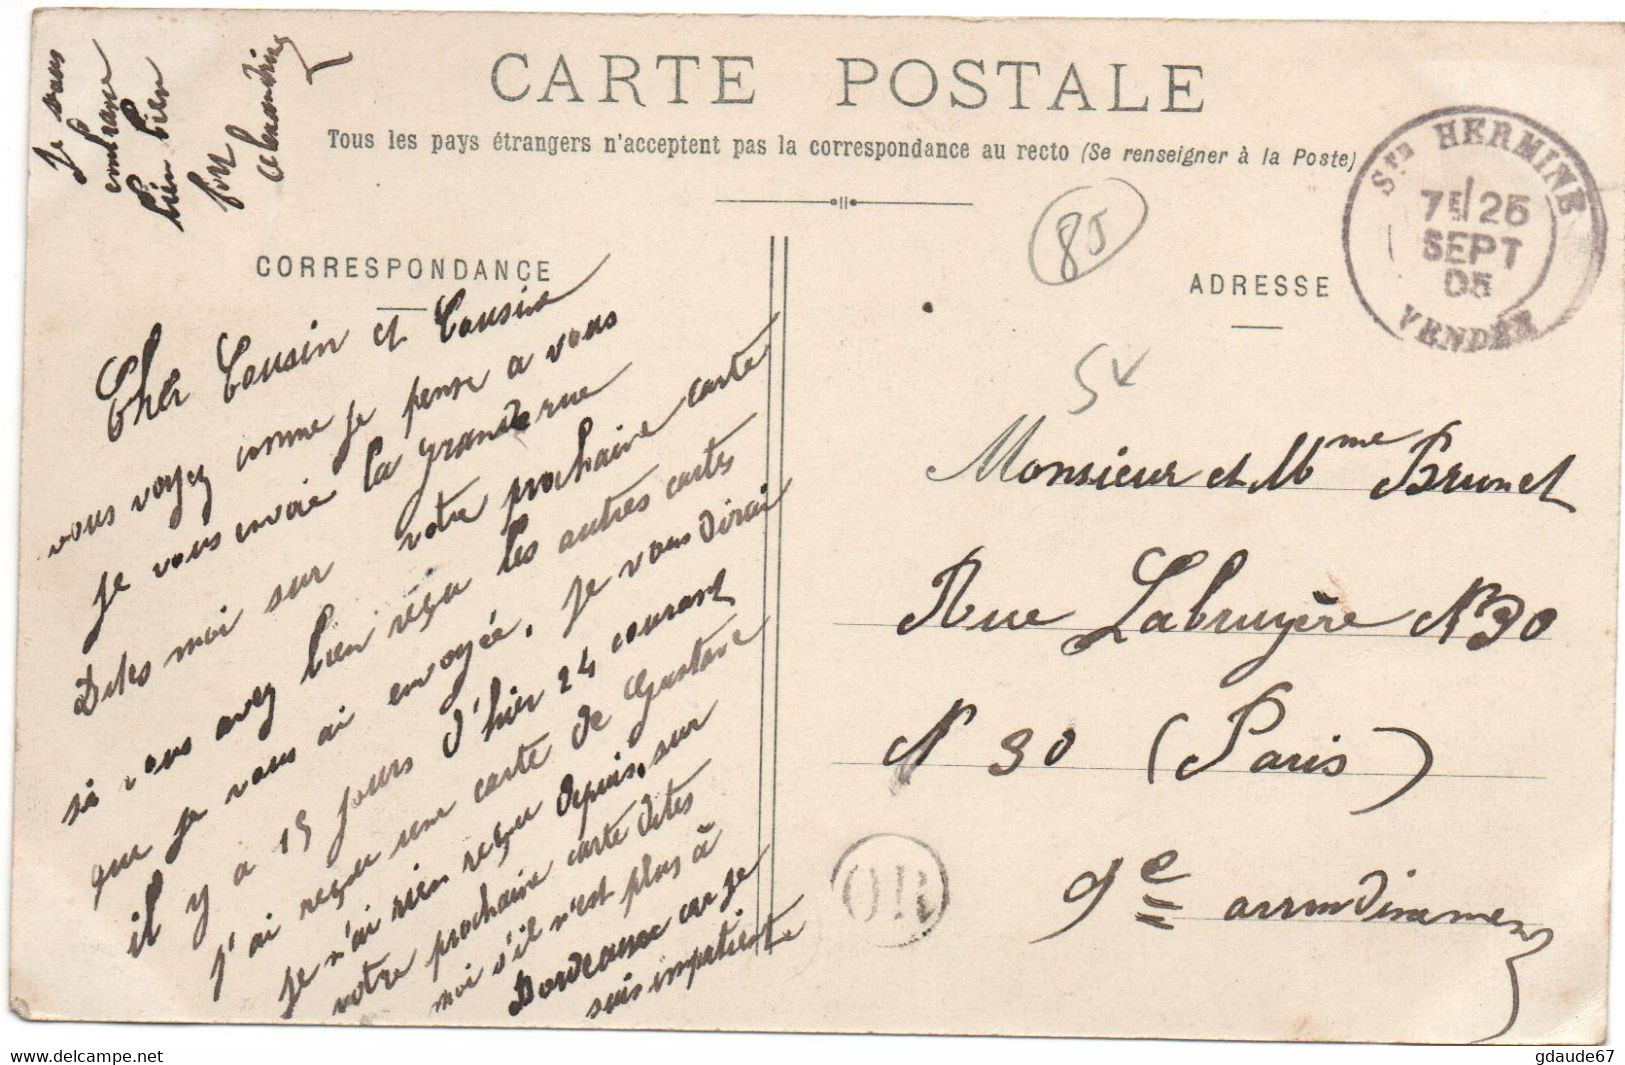 CARTE POSTALE
Tous les pays étrangers n'acceptent pas la correspondance au recto (Se renseigner à la Poste)
CORRESPONDANCE
ADRESSE
STE HERMINE
7E/25
SEPT
05
VENDÉE
85
Je vous
embrasse
bien bien
fort
alexandrine
Cher Cousin et Cousine
vous voyez comme je pense a vous
je vous envoie la grande rue
Dites moi sur votre prochaine carte
si vous avez bien reçu les autres cartes
que je vous ai envoyée. Je vous dirai
il y a 15 jours d'hier 24 courant
j'ai reçu une carte de Gustave
Je n'ai rien reçu depuis, sur
votre prochaine carte dites
moi s'il n'est plus à
Bordeaux car je
suis impatiente
Monsieur et Mme Brunet
Rue Labruyère N 30
N 30 (Paris)
9e arrondissement
OR
gdaude67